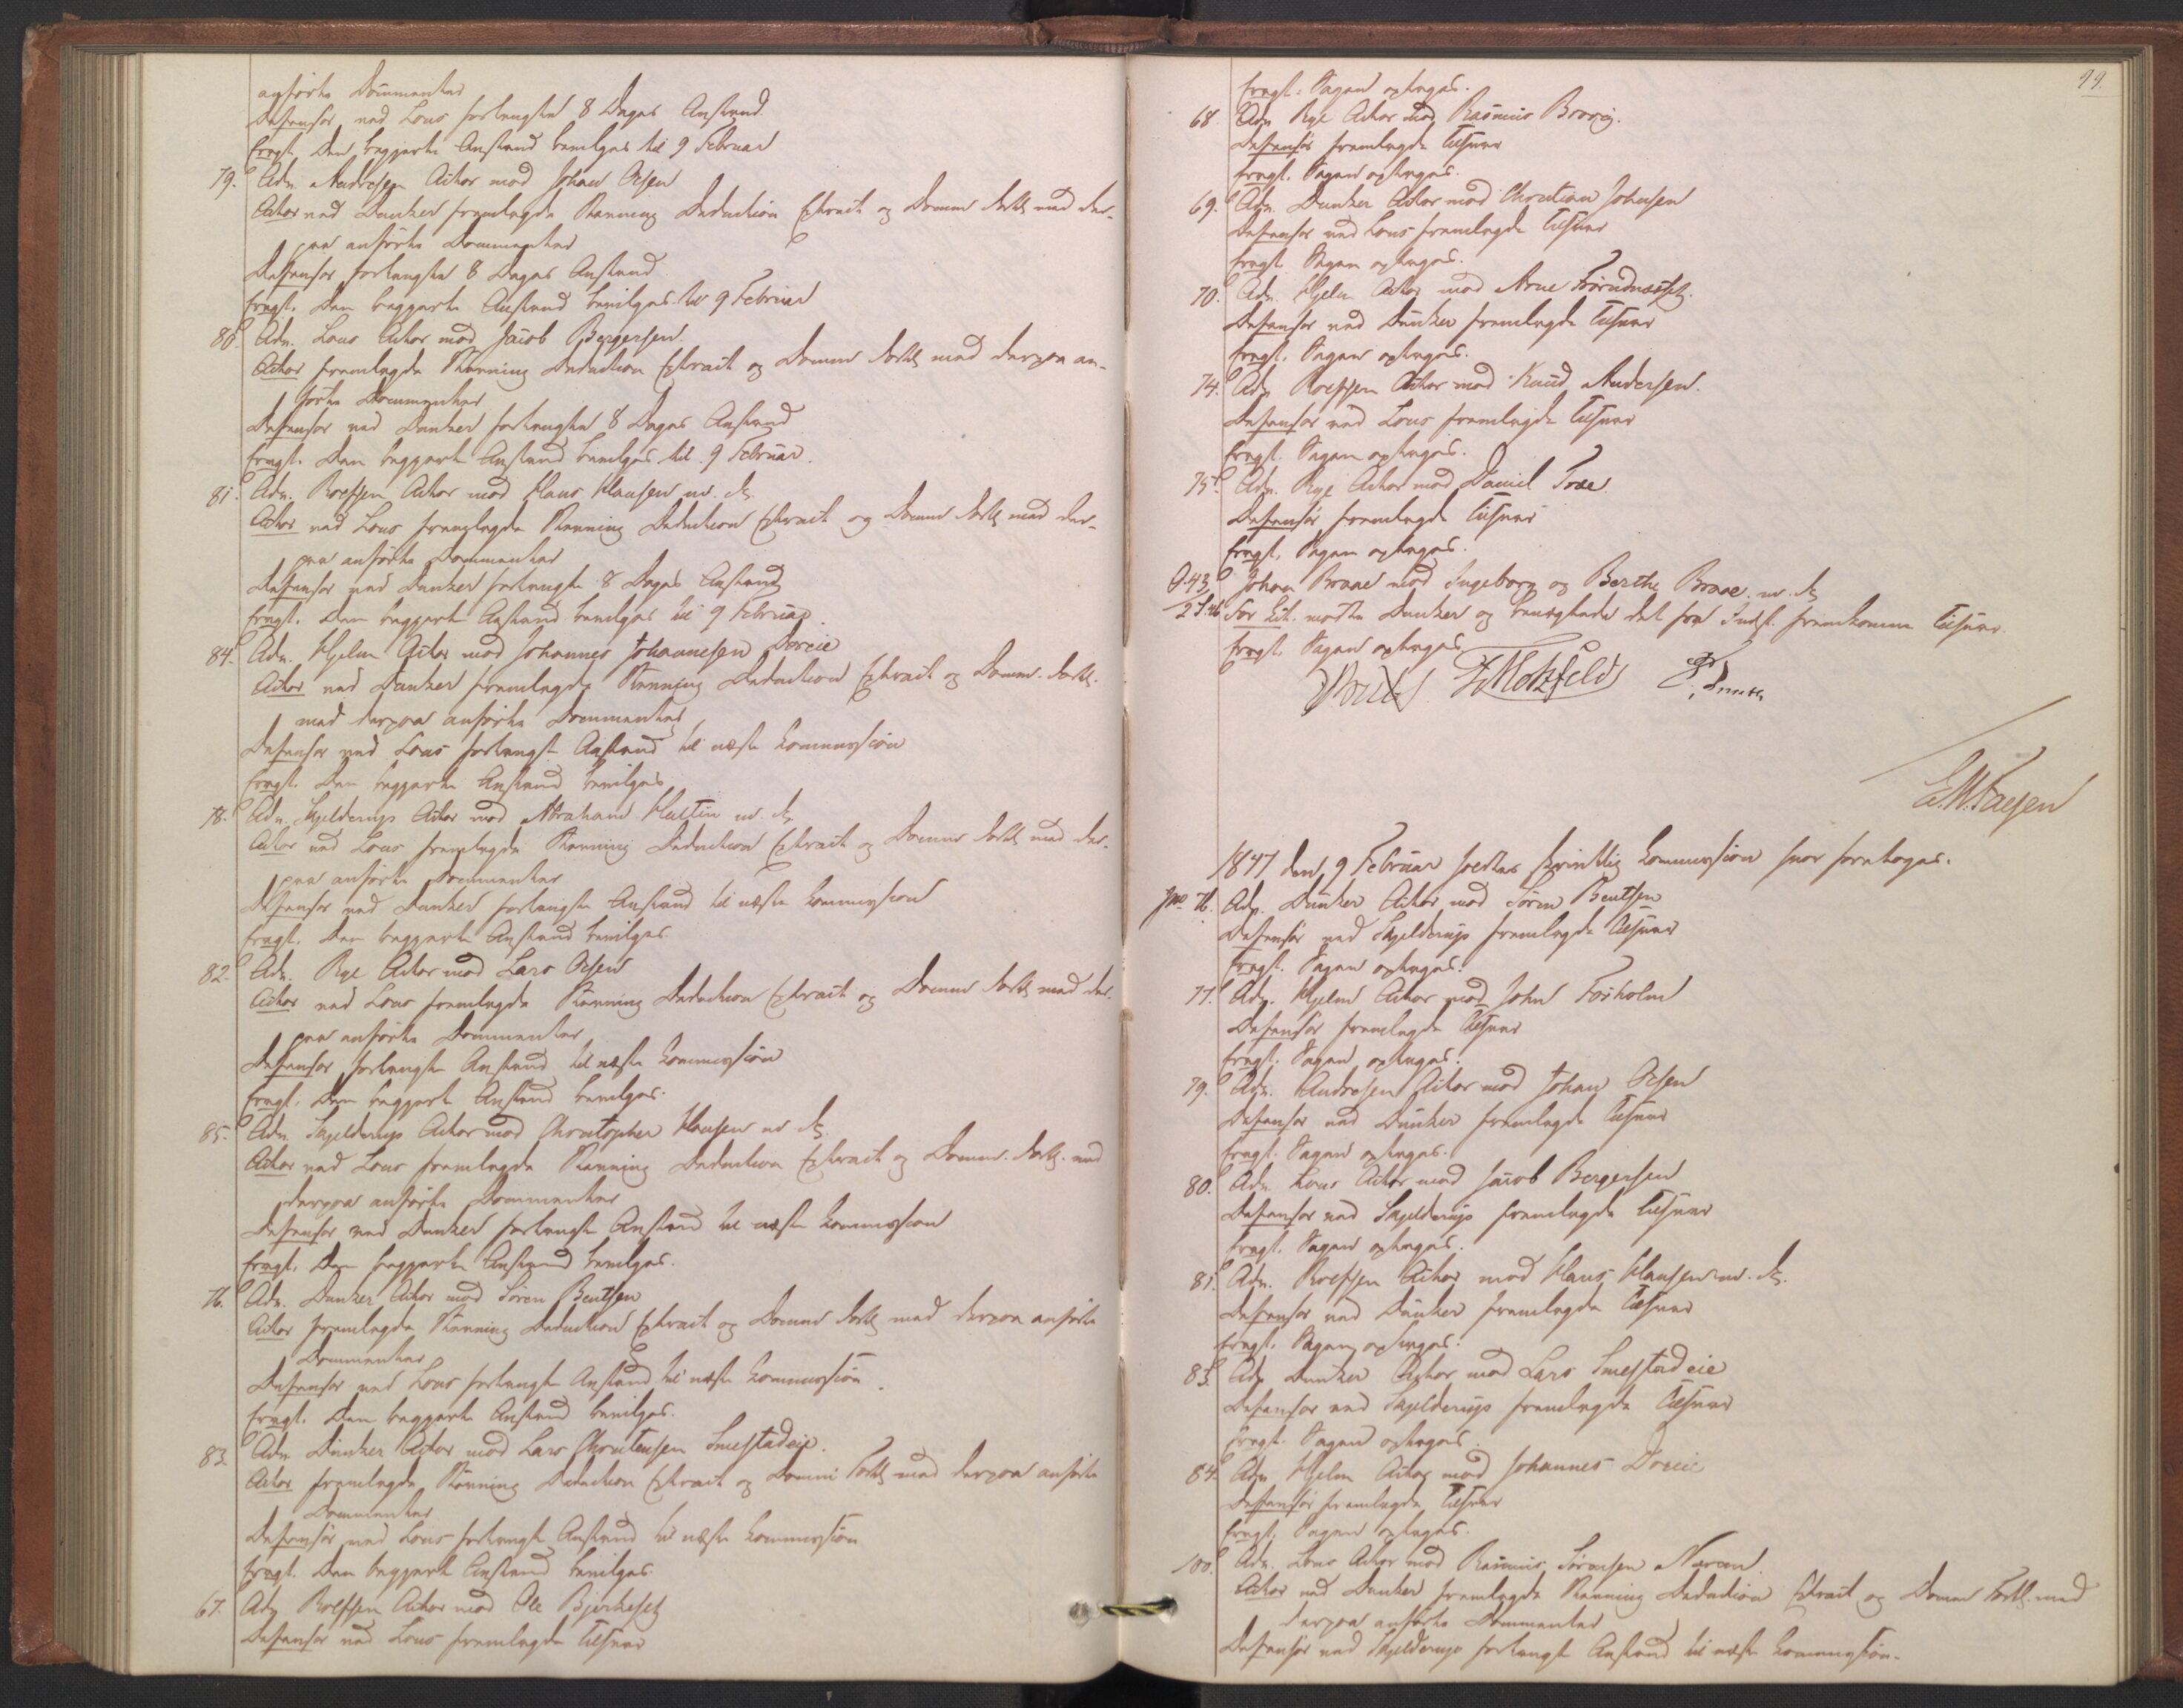 anførte Documenter
Defensor ved Lous forlangte 8 Dages Anstand
Eragt. Den begjærte Anstand bevilges til 9 Februar
79. Adv. Andresen Actor mod Johan Olsen
Actor ved Dunker fremlagde Stevning Deduction Extract og Domme Forkl. med der-
paa anførte Documenter
Defensor forlangte 8 Dages Anstand
Eragt. Den begjærte Anstand bevilges til 9 Februar
80. Adv. Lous Actor mod Jacob Bergersen
Actor fremlagde Stevning Deduction Extract og Domme Forkl. med derpaa an-
førte Documenter
Defensor ved Dunker forlangte 8 Dages Anstand
Eragt. Den begjærte Anstand bevilges til 9 Februar.
81. Adv. Rolfsen Actor mod Hans Hansen m. fl.
Actor ved Lous fremlagde Stevning Deduction Extract og Domme Forkl. med der-
paa anførte Documenter
Defensor ved Dunker forlangte 8 Dages Anstand
Eragt. Den begjærte Anstand bevilges til 9 Februar.
84. Adv. Hjelm Actor mod Johannes Johannesen Doreie
Actor ved Dunker fremlagde Stevning Deduction Extract og Domme Forkl.
med derpaa anførte Documenter
Defensor ved Lous forlangte Anstand til næste Commission
Eragt. Den begjærte Anstand bevilges
78. Adv. Skjelderup Actor mod Abraham Hultin m. fl.
Actor ved Lous fremlagde Stevning Deduction Extract og Domme Forkl. med der-
paa anførte Documenter
Defensor ved Dunker forlangte Anstand til næste Commission
Eragt. Den begjærte Anstand bevilges
82. Adv. Rye Actor mod Lars Olsen
Actor ved Lous fremlagde Stevning Deduction Extract og Domme Forkl. med der-
paa anførte Documenter
Defensor forlangte Anstand til næste Commission
Eragt. Den begjærte Anstand bevilges.
85. Adv. Skjelderup Actor mod Christopher Hansen m. fl.
Actor ved Lous fremlagde Stevning Deduction Extract og Domme Forkl. med
derpaa anførte Documenter
Defensor ved Dunker forlangte Anstand til næste Commission
Eragt. Den begjærte Anstand bevilges.
76. Adv. Dunker Actor mod Søren Bentsen
Actor fremlagde Stevning Deduction Extract og Domme Forkl. med derpaa anførte
Documenter
Defensor ved Lous forlangte Anstand til næste Commission.
Eragt. Den begjærte Anstand bevilges.
83. Adv. Dunker Actor mod Lars Christensen Smestadeie.
Actor fremlagde Stevning Deduction Extract og Domme Forkl. med derpaa anførte
Documenter
Defensor ved Lous forlangte Anstand til næste Commission
Eragt. Den begjærte Anstand bevilges.
67. Adv. Rolfsen Actor mod Ole Bjerkeset
Defensor ved Lous fremlagde Tilsvar
99.
Eragt. Sagen optages.
68. Adv. Rye Actor mod Rasmus Brovig.
Defensor fremlagde Tilsvar
Eragt. Sagen optages.
69. Adv. Dunker Actor mod Christian Johnsen
Defensor ved Lous fremlagde Tilsvar
Eragt. Sagen optages.
70. Adv. Hjelm Actor mod Arne
Defensor ved Dunker fremlagde Tilsvar
Eragt. Sagen optages.
74. Adv. Rolfsen Actor mod Knud Andersen.
Defensor ved Lous fremlagde Tilsvar
Eragt. Sagen optages.
75. Adv. Rye Actor mod Daniel Troe.
Defensor fremlagde Tilsvar
Eragt. Sagen optages.
Johan Braae mod Ingeborg og Berthe Braae m. fl.
For Cit. mødte Dunker og benægtede det fra Indst. fremkomne Tilsvar.
Eragt. Sagen optages
Motzfeldt
E. M. Fagen
1847 den 9 Februar holdtes skriftlig Commission hvor foretoges.
76. Adv. Dunker Actor mod Søren Bentsen
Defensor ved Skjelderup fremlagde Tilsvar
Eragt. Sagen optages.
77. Adv. Hjelm Actor mod John Forholm
Defensor fremlagde Tilsvar
Eragt. Sagen optages.
79. Adv. Andresen Actor mod Johan Olsen
Defensor ved Dunker fremlagde Tilsvar
Eragt. Sagen optages.
80. Adv. Lous Actor mod Jacob Bergersen
Defensor ved Skjelderup fremlagde Tilsvar
Eragt. Sagen optages.
81. Adv. Rolfsen Actor mod Hans Hansen m. fl.
Defensor ved Dunker fremlagde Tilsvar
Eragt. Sagen optages.
83. Adv. Dunker Actor mod Lars Smestadeie
Defensor ved Skjelderup fremlagde Tilsvar
Eragt. Sagen optages.
84. Adv. Hjelm Actor mod Johannes Doreie
Defensor fremlagde Tilsvar
Eragt. Sagen optages.
100. Adv. Lous Actor mod Rasmus Sørensen
Actor ved Dunker fremlagde Stevning Deduction Extract og Domme Forkl. med
derpaa anførte Documenter
Defensor ved Skjelderup forlangte Anstand til næste Commission.